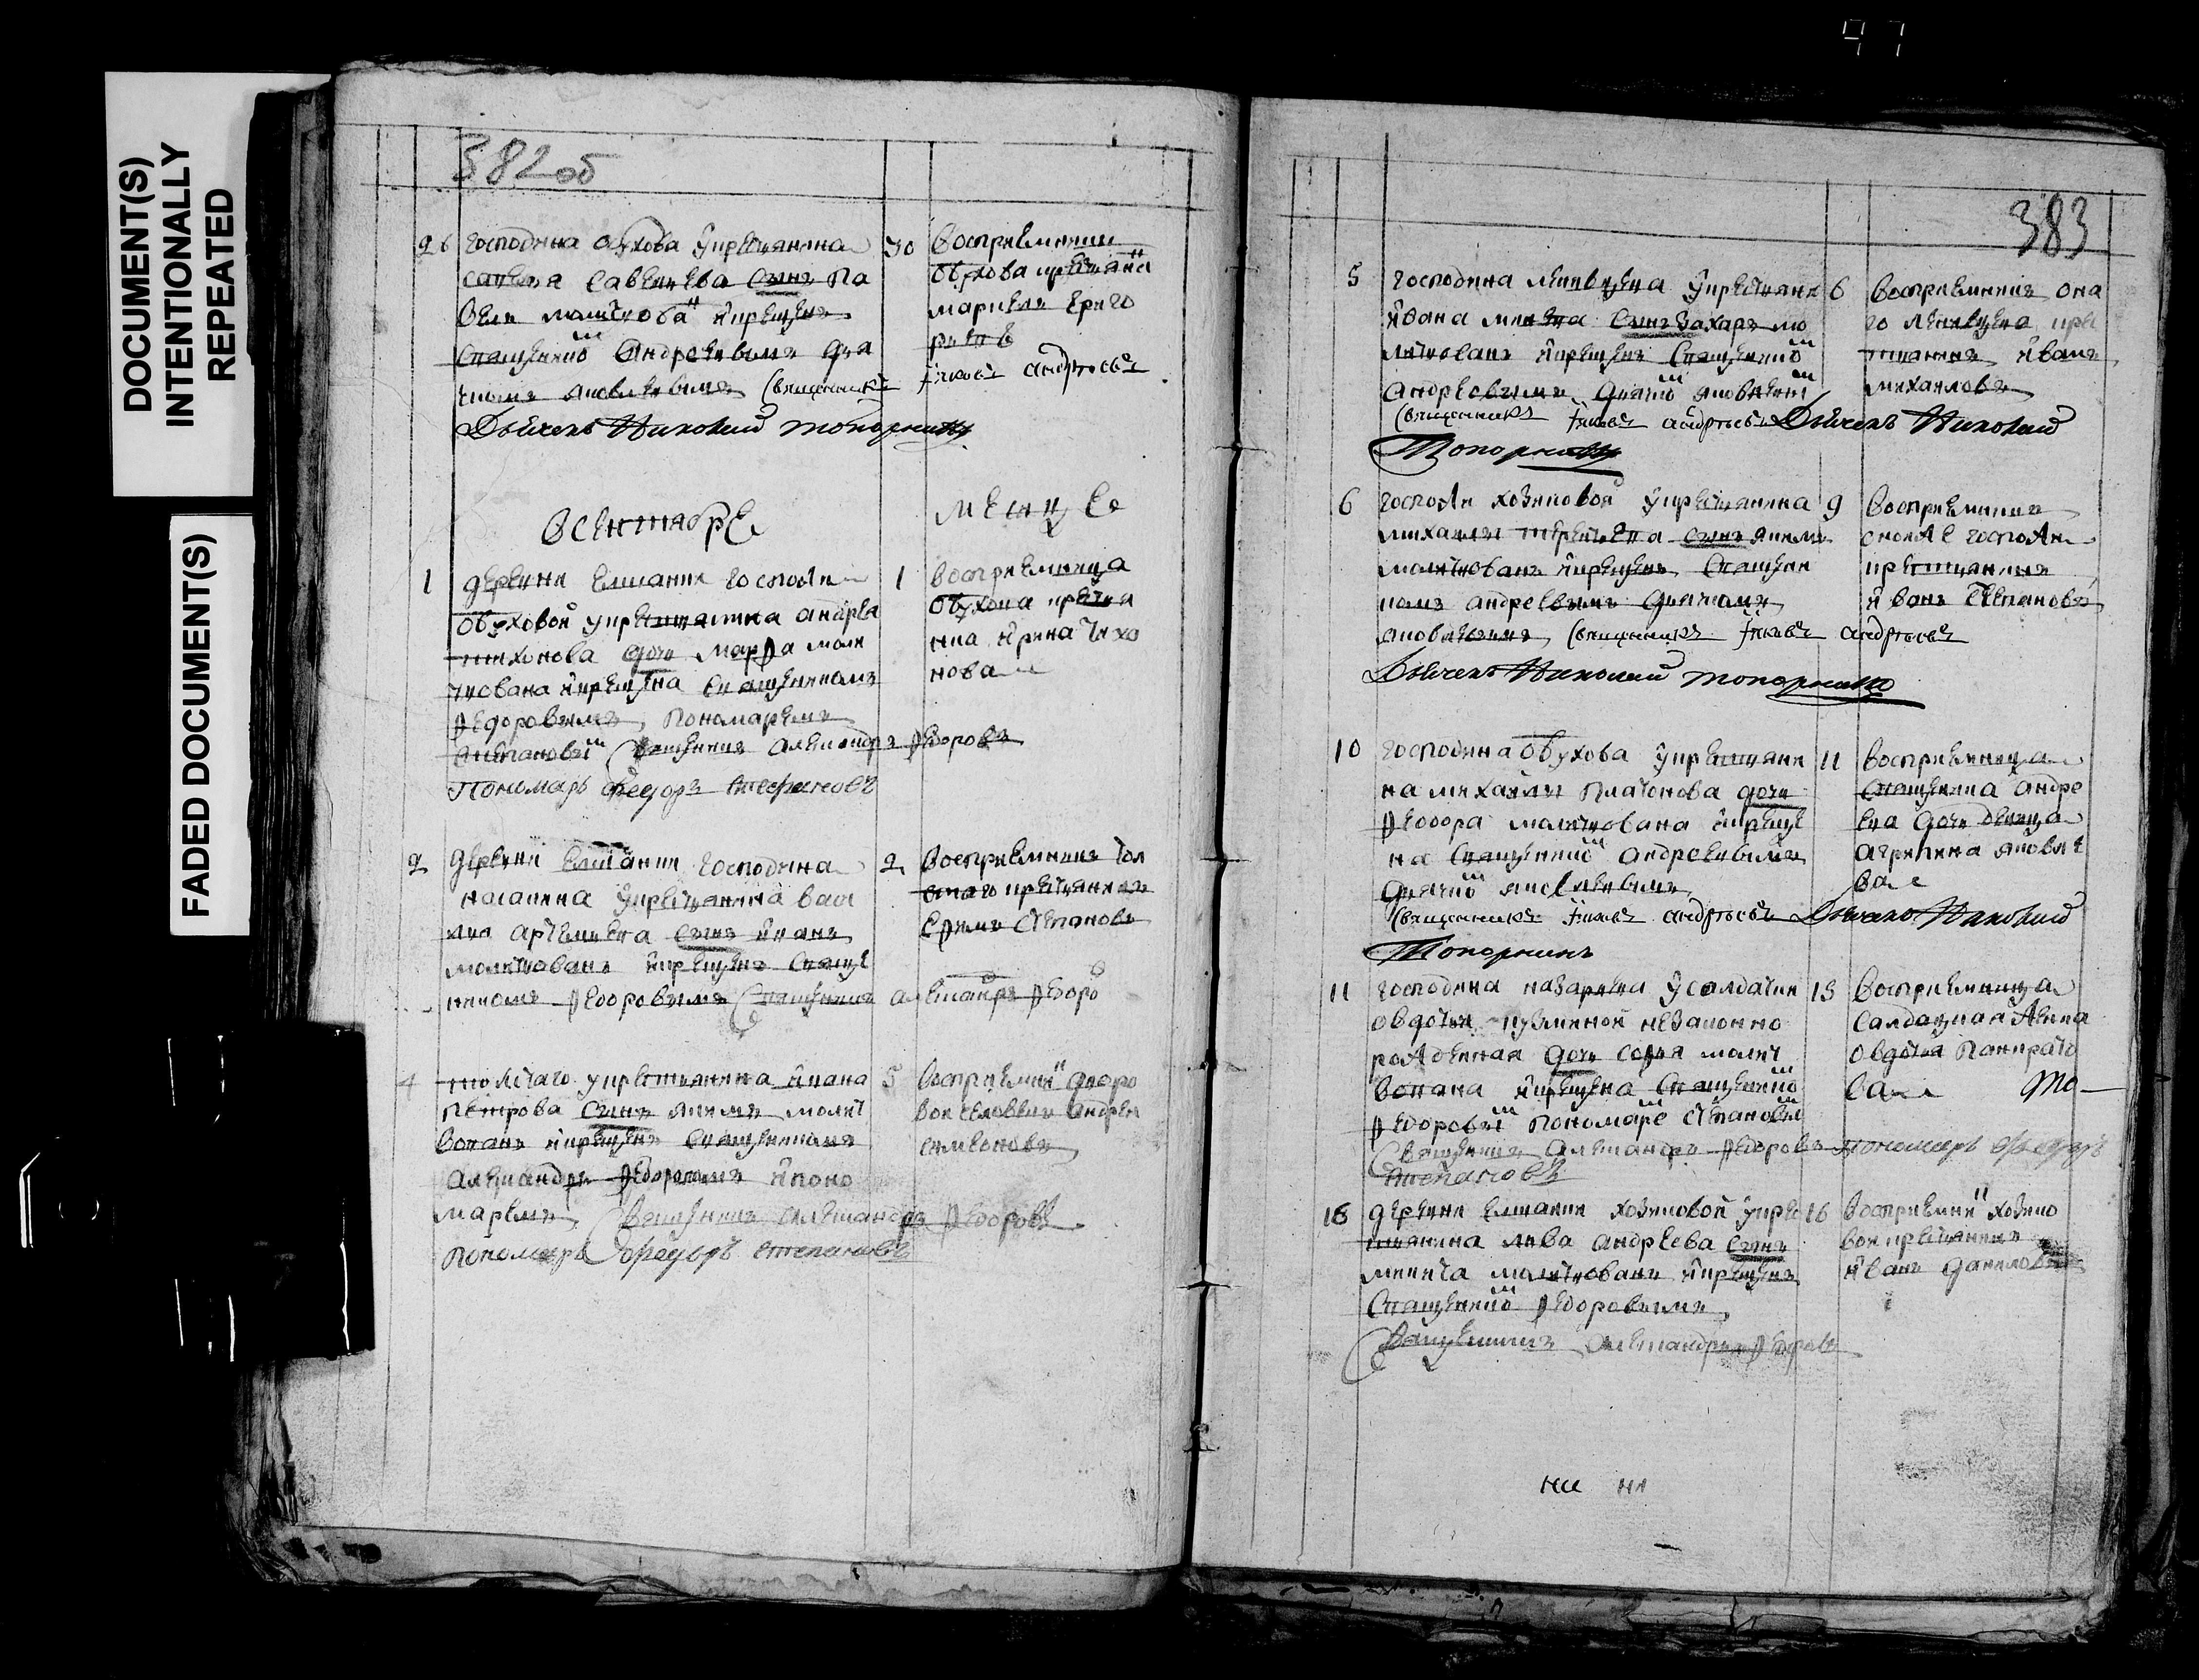 DOCUMENT(S)
INTENTIONALLY
REPEATED
FADED DOCUMENT(S)
382 об
26 господина обухова укрестьянина 30
савелья савельева сынъ па
велъ молитвова икрещенъ
священико андреевымъ дья
комъ яковлевымъ священникъ Iяковъ андреевъ
Дьячекъ Николай топорнинъ
восприемникъ
обухова крестьяни
григо
рьевъ
всентябре месяце
1 деревни елшанки госпожи 1
обуховой укрестьянина андрея
тихонова дочь марфа моли
твована икрещена священикомъ
федоровымъ пономаремъ
степановы священникъ александръ федоровъ
Пономарь Федоръ Степановъ
восприемница
обухова крестья
нка ирина тихо
нова
2 деревни елшанки господина 2
укрестьянина васи
лия артемьева сынъ иванъ
молитвованъ икрещенъ свяще
никомъ федоровымъ священикъ александръ федоро
восприемникъ тол
стаго крестьянинъ
ефимъ степановъ
4 толстаго укрестьянина ивана 5
петрова сынъ якимъ молит
вованъ икрещенъ священикомъ
александръ федоровымъ ипоно
маремъ священникъ александръ федоровъ
Пономарь Федоръ степановъ
восприемни дворо
вой человекъ андрей
симеоновъ
47
383
5 господина укрестьяни 6
ивана сынъ захаръ мо
литвованъ икрещенъ священико
андреевымъ дьячко яковлевы
священникъ Iяковъ андреевъ Дьячекъ Николай
Топорнинъ
восприемникъ она
го кре
стьянинъ иванъ
михаиловъ
6 госпожи хозиковой укрестьянина 9
михаилы терентьева сынъ якимъ
молитвованъ икрещенъ священи
комъ андреевымъ дьячкомъ
яковлевымъ священникъ Iяковъ андреевъ
Дьячекъ Николай топорнинъ
восприемникъ
госпожи
крестьянинъ
иванъ степановъ
10 господина обухова укрестьяни 11
на михаилы платонова дочь
феодора молитвована икреще
на священико андреевымъ
дьячко яковлевымъ
священникъ Iяковъ андреевъ Дьячекъ Николай
Топорнинъ
восприемница
священика андре
ева дочь девица
агрипина яковле
ва
11 господина назарьева усолдатки 13
овдотьи кузминой незаконно
рожденная дочь софья молит
вована икрещена священико
федоровы пономаре степановы
священникъ александръ федоровъ пономарь Федоръ
Степановъ
восприемница
салдацкая женка
овдотья панкрато
ва То
16 деревни елшанки хозиковой укре 16
стьянина лва андреева сынъ
никита молитвованъ икрещенъ
священико федоровымъ
священникъ александръ федоровъ
восприемни хозико
вой крестьянинъ
иванъ даниловъ